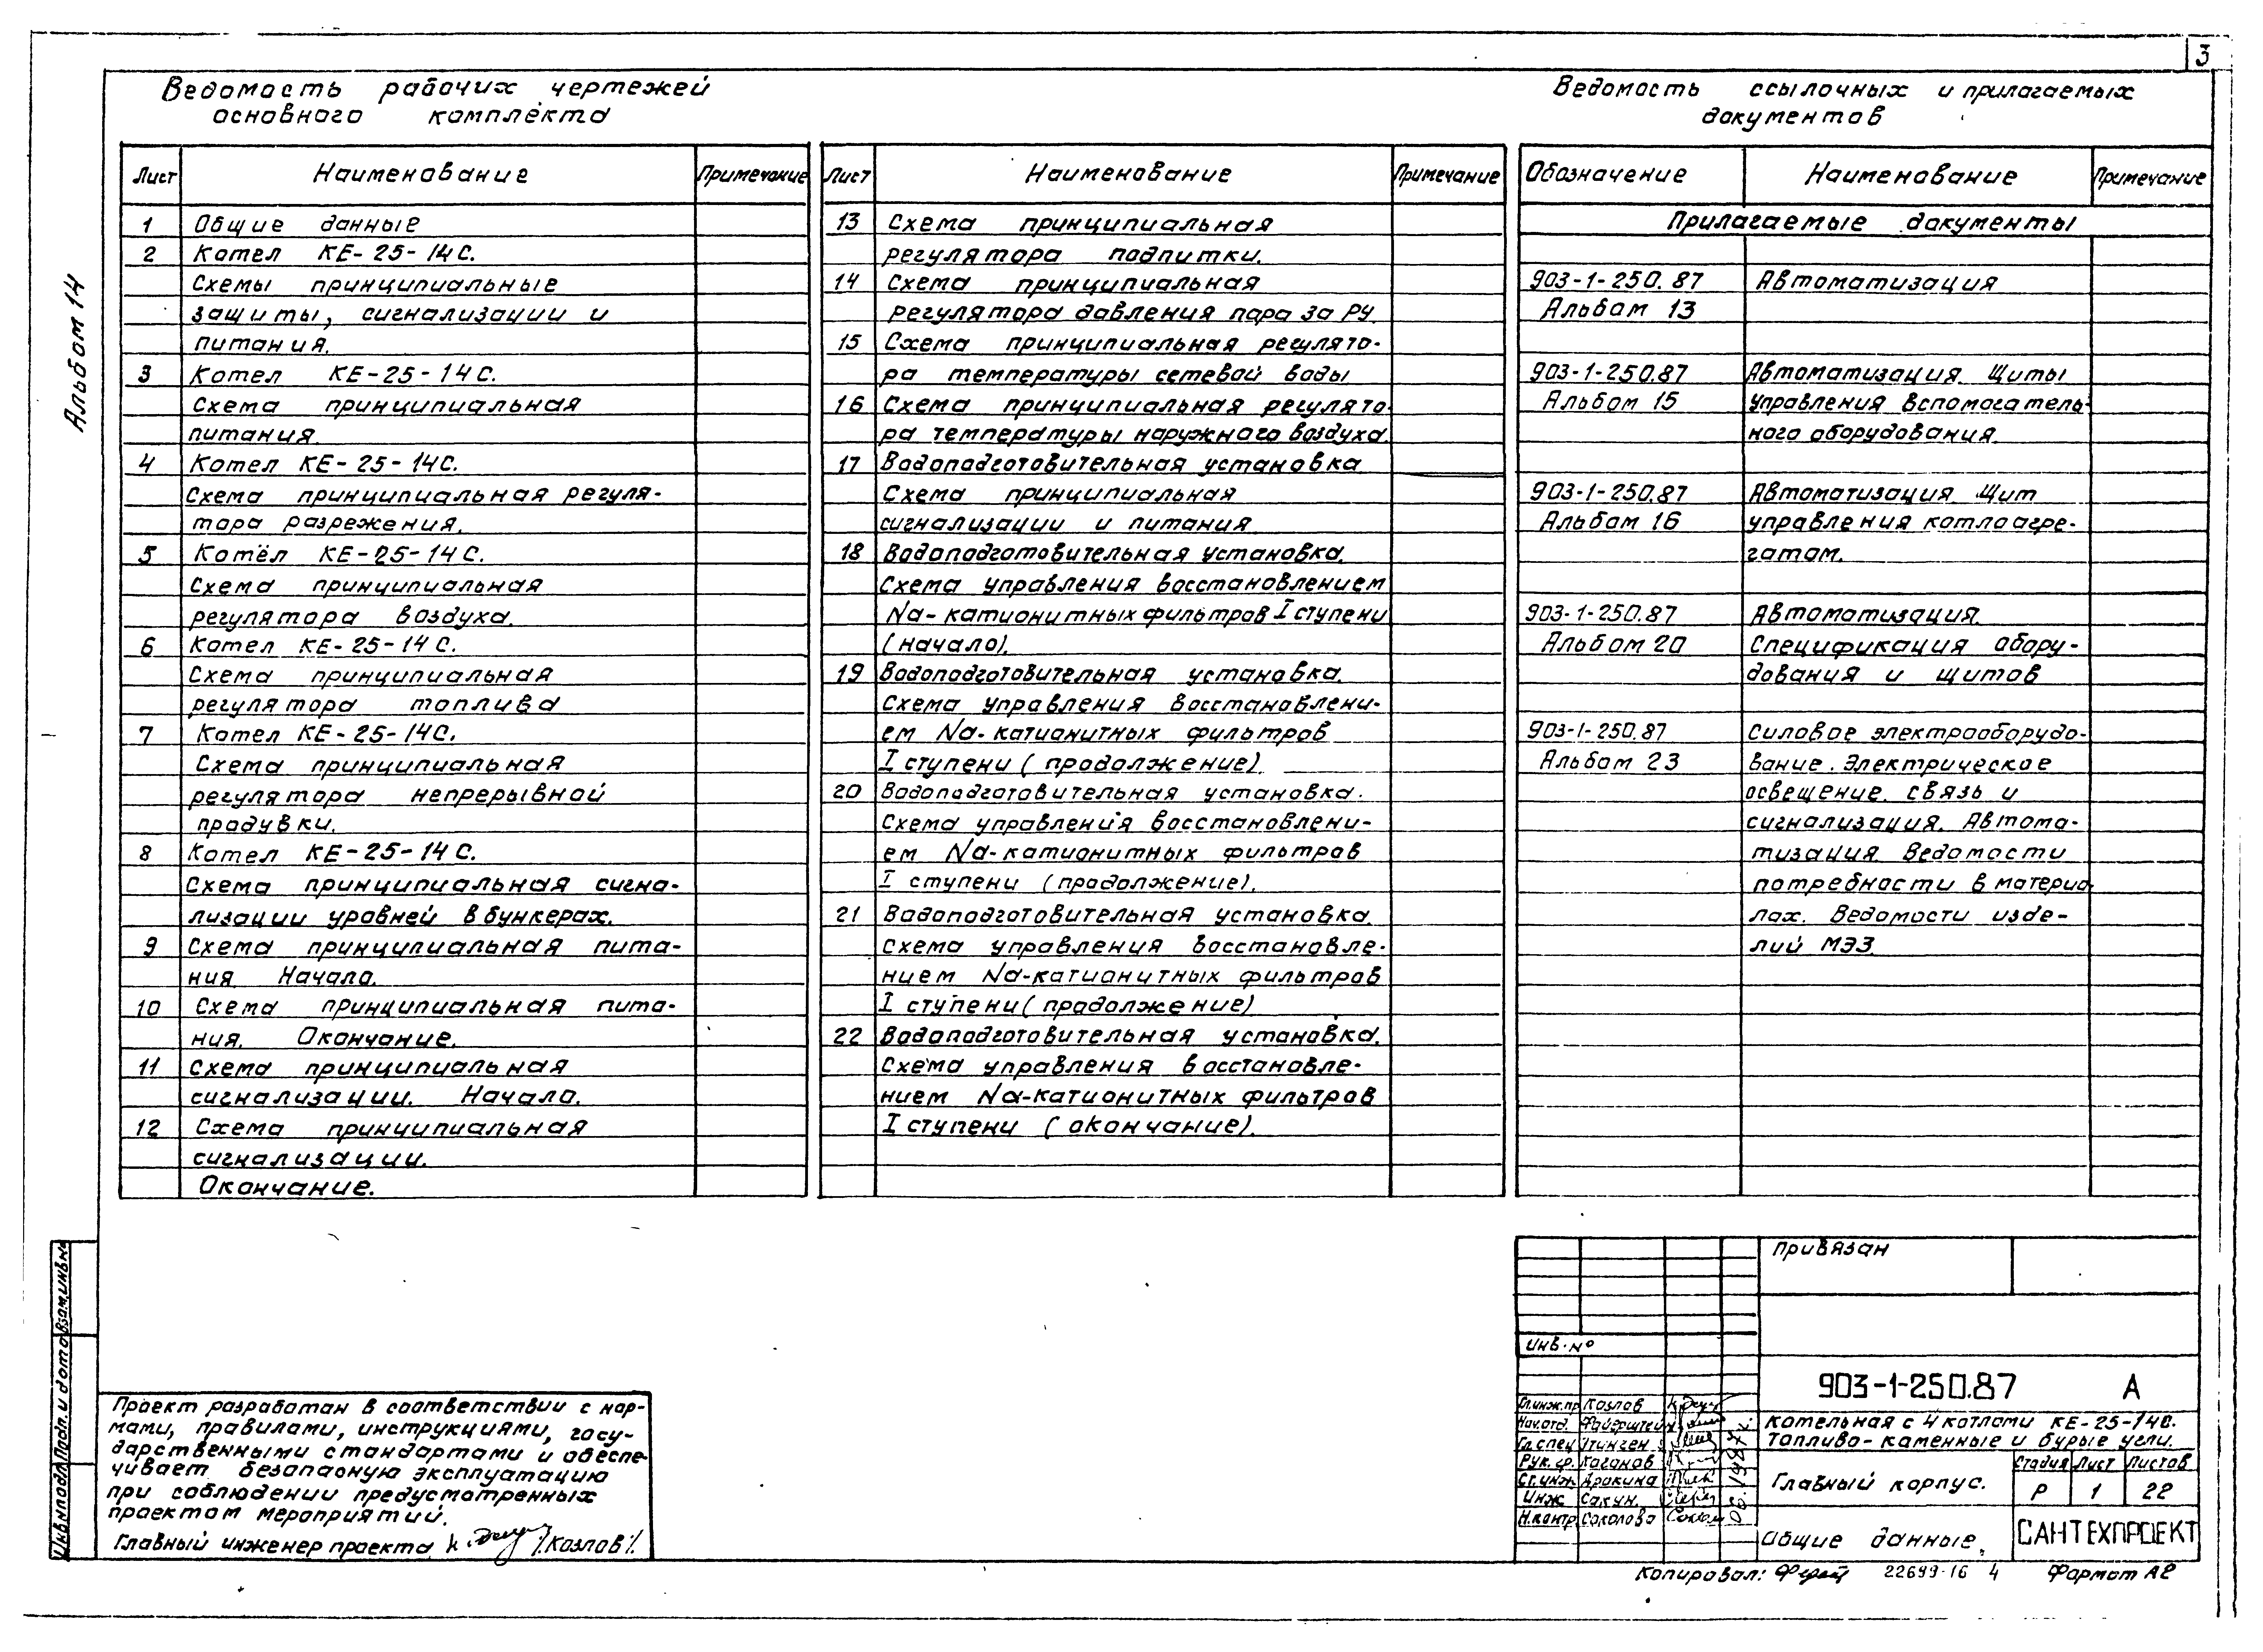 3
Ведомость рабочих чертежей
основного комплекта
Лист Наименование Примечание
1 Общие данные
2 Котел КЕ-25-14С.
Схемы принципиальные
защиты, сигнализации и
питания.
3 Котел КЕ-25-14С.
Схема принципиальная
питания.
4 Котел КЕ-25-14С.
Схема принципиальная регуля-
тора разрежения.
5 Котёл КЕ-25-14С.
Схема принципиальная
регулятора воздуха.
6 Котел КЕ-25-14С.
Схема принципиальная
регулятора топлива
7 Котел КЕ-25-14С.
Схема принципиальная
регулятора непрерывной
продувки.
8 Котел КЕ-25-14С.
Схема принципиальная сигна-
лизации уровней в бункерах.
9 Схема принципиальная пита-
ния. Начало.
10 Схема принципиальная пита-
ния. Окончание.
11 Схема принципиальная
сигнализации. Начало.
12 Схема принципиальная
сигнализации.
Окончание.
Лист Наименование Примечание
13 Схема принципиальная
регулятора подпитки.
14 Схема принципиальная
регулятора давления пара за РУ.
15 Схема принципиальная регулято-
ра температуры сетевой воды
16 Схема принципиальная регулято-
ра температуры наружного воздуха.
17 Водоподготовительная установка
Схема принципиальная
сигнализации и питания
18 Водоподготовительная установка.
Схема управления восстановлением
Na-катионитных фильтров I ступени
(начало).
19 Водоподготовительная установка.
Схема управления восстановлени-
ем Na-катионитных фильтров
I ступени (продолжение)
20 Водоподготовительная установка.
Схема управления восстановлени-
ем Na-катионитных фильтров
I ступени (продолжение).
21 Водоподготовительная установка.
Схема управления восстановле-
нием Na-катионитных фильтров
I ступени (продолжение)
22 Водоподготовительная установка.
Схема управления восстановле-
нием Na-катионитных фильтров
I ступени (окончание).
Ведомость ссылочных и прилагаемых
документов
Обозначение Наименование Примечание
Прилагаемые документы
903-1-250.87 Автоматизация
Альбом 13
903-1-250.87 Автоматизация. Щиты
Альбом 15 управления вспомогатель-
ного оборудования.
903-1-250.87 Автоматизация. Щит
Альбом 16 управления котлоагре-
гатом.
903-1-250.87 Автоматизация.
Альбом 20 Спецификация обору-
дования и щитов
903-1-250.87 Силовое электрооборудо-
Альбом 23 вание. Электрическое
освещение. связь и
сигнализация. Автома-
тизация. Ведомости
потребности в материа
лах. Ведомости изде-
лий МЭЗ.
Альбом 14
Взам.инв.№
Подп. и дата
Инв.№подл
Проект разработан в соответствии с нор-
мами, правилами, инструкциями, госу-
дарственными стандартами и обеспе-
чивает безопасную эксплуатацию
при соблюдении предусмотренных
проектом мероприятий.
Главный инженер проекта /Козлов/.
Привязан
Инв.№
903-1-250.87 А
Гл.инж.пр Козлов
Нач.отд. Файерштейн
Гл.спец Этинген
Рук.гр. Каганов
Ст.инж Аракина
Инж Сакун.
Н.контр Соколова
Котельная с 4 котлами КЕ-25-14С.
Топливо-каменные и бурые угли.
Главный корпус.
Стадия Лист Листов
Р 1 22
Общие данные.
САНТЕХПРОЕКТ
Копировал: 22699-16 4 Формат А2